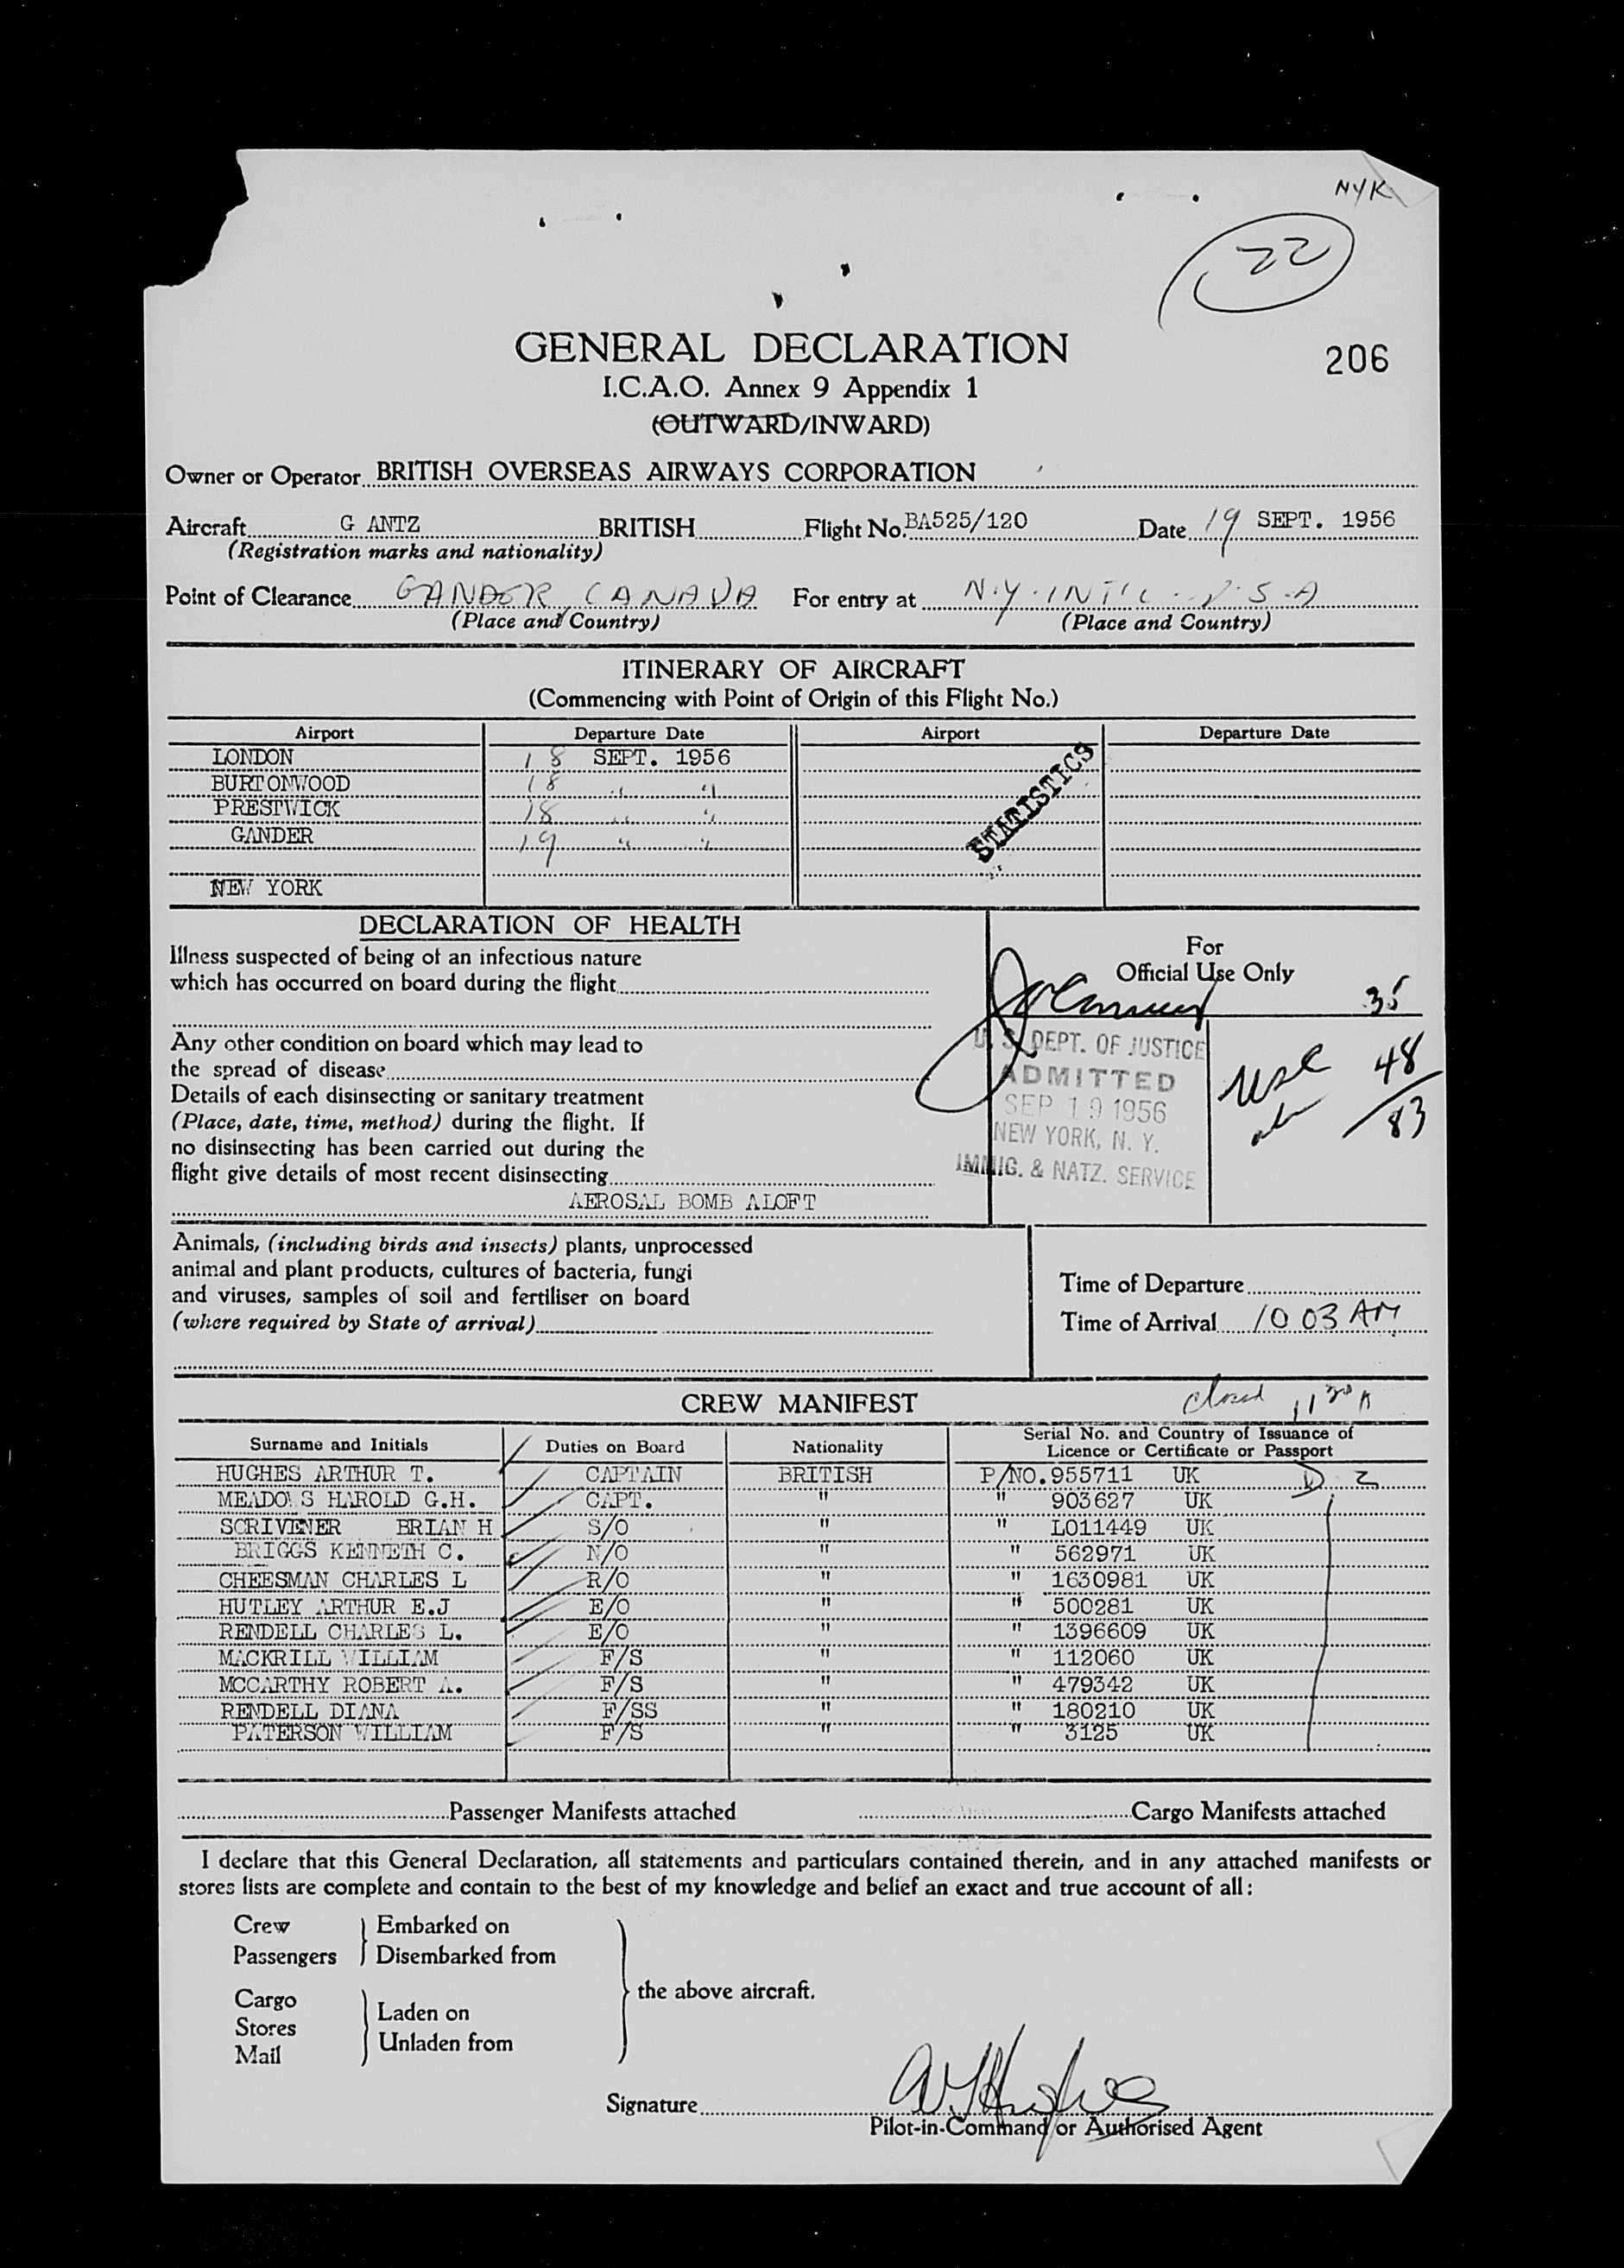 NYK
22
GENERAL DECLARATION
206
I.C.A.O. Annex 9 Appendix 1
(OUTWARD/INWARD)
Owner or Operator BRITISH OVERSEAS AIRWAYS CORPORATION
Aircraft G ANTZ BRITISH Flight No. BA525/120 Date 19 SEPT. 1956
(Registration marks and nationality)
Point of Clearance GANDER, CANADA For entry at N.Y. INT'L. U.S.A
(Place and Country) (Place and Country)
ITINERARY OF AIRCRAFT
(Commencing with Point of Origin of this Flight No.)
Airport Departure Date Airport Departure Date
LONDON 18 SEPT. 1956
BURTONWOOD 18 " "
PRESTWICK 18 " "
GANDER 19 " "
NEW YORK
STATISTICS
DECLARATION OF HEALTH
Illness suspected of being of an infectious nature
which has occurred on board during the flight
Any other condition on board which may lead to
the spread of disease
Details of each disinsecting or sanitary treatment
(Place, date, time, method) during the flight. If
no disinsecting has been carried out during the
flight give details of most recent disinsecting
AEROSAL BOMB ALOFT
For
Official Use Only
35
48
83
U. S. DEPT. OF JUSTICE
ADMITTED
SEP 19 1956
NEW YORK, N. Y.
IMMIG. & NATZ. SERVICE
Animals, (including birds and insects) plants, unprocessed
animal and plant products, cultures of bacteria, fungi
and viruses, samples of soil and fertiliser on board
(where required by State of arrival)
Time of Departure
Time of Arrival 10 03 AM
CREW MANIFEST
closed 11 30 A
Surname and Initials Duties on Board Nationality Serial No. and Country of Issuance of Licence or Certificate or Passport
HUGHES ARTHUR T. CAPTAIN BRITISH P/NO. 955711 UK D. 2
MEADOWS HAROLD G.H. CAPT. " " 903627 UK
SCRIVENER BRIAN H S/O " " L011449 UK
BRIGGS KENNETH C. N/O " " 562971 UK
CHEESMAN CHARLES L R/O " " 1630981 UK
HUTLEY ARTHUR E.J E/O " " 500281 UK
RENDELL CHARLES L. E/O " " 1396609 UK
MACKRILL WILLIAM F/S " " 112060 UK
MCCARTHY ROBERT A. F/S " " 479342 UK
RENDELL DIANA F/SS " " 180210 UK
PATERSON WILLIAM F/S " " 3125 UK
Passenger Manifests attached Cargo Manifests attached
I declare that this General Declaration, all statements and particulars contained therein, and in any attached manifests or
stores lists are complete and contain to the best of my knowledge and belief an exact and true account of all:
Crew
Passengers
Embarked on
Disembarked from
Cargo
Stores
Mail
Laden on
Unladen from
the above aircraft.
Signature A T Hughes
Pilot-in-Command or Authorised Agent